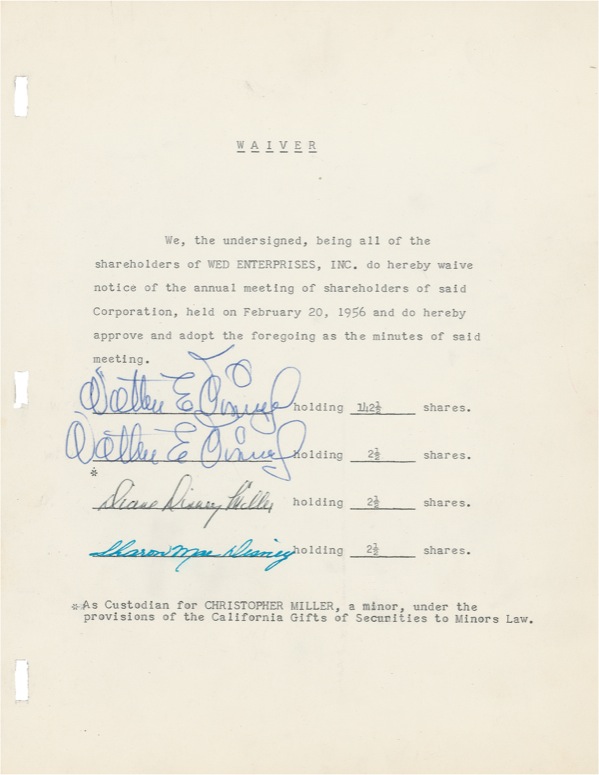 WAIVER
We, the undersigned, being all of the
shareholders of WED ENTERPRISES, INC. do hereby waive
notice of the annual meeting of shareholders of said
Corporation, held on February 20, 1956 and do hereby
approve and adopt the foregoing as the minutes of said
meeting.
Walter E Disney holding 142½ shares.
Walter E Disney holding 2½ shares.
*
Diane Disney Miller holding 2½ shares.
Sharon Mae Disney holding 2½ shares.
*As Custodian for CHRISTOPHER MILLER, a minor, under the
provisions of the California Gifts of Securities to Minors Law.